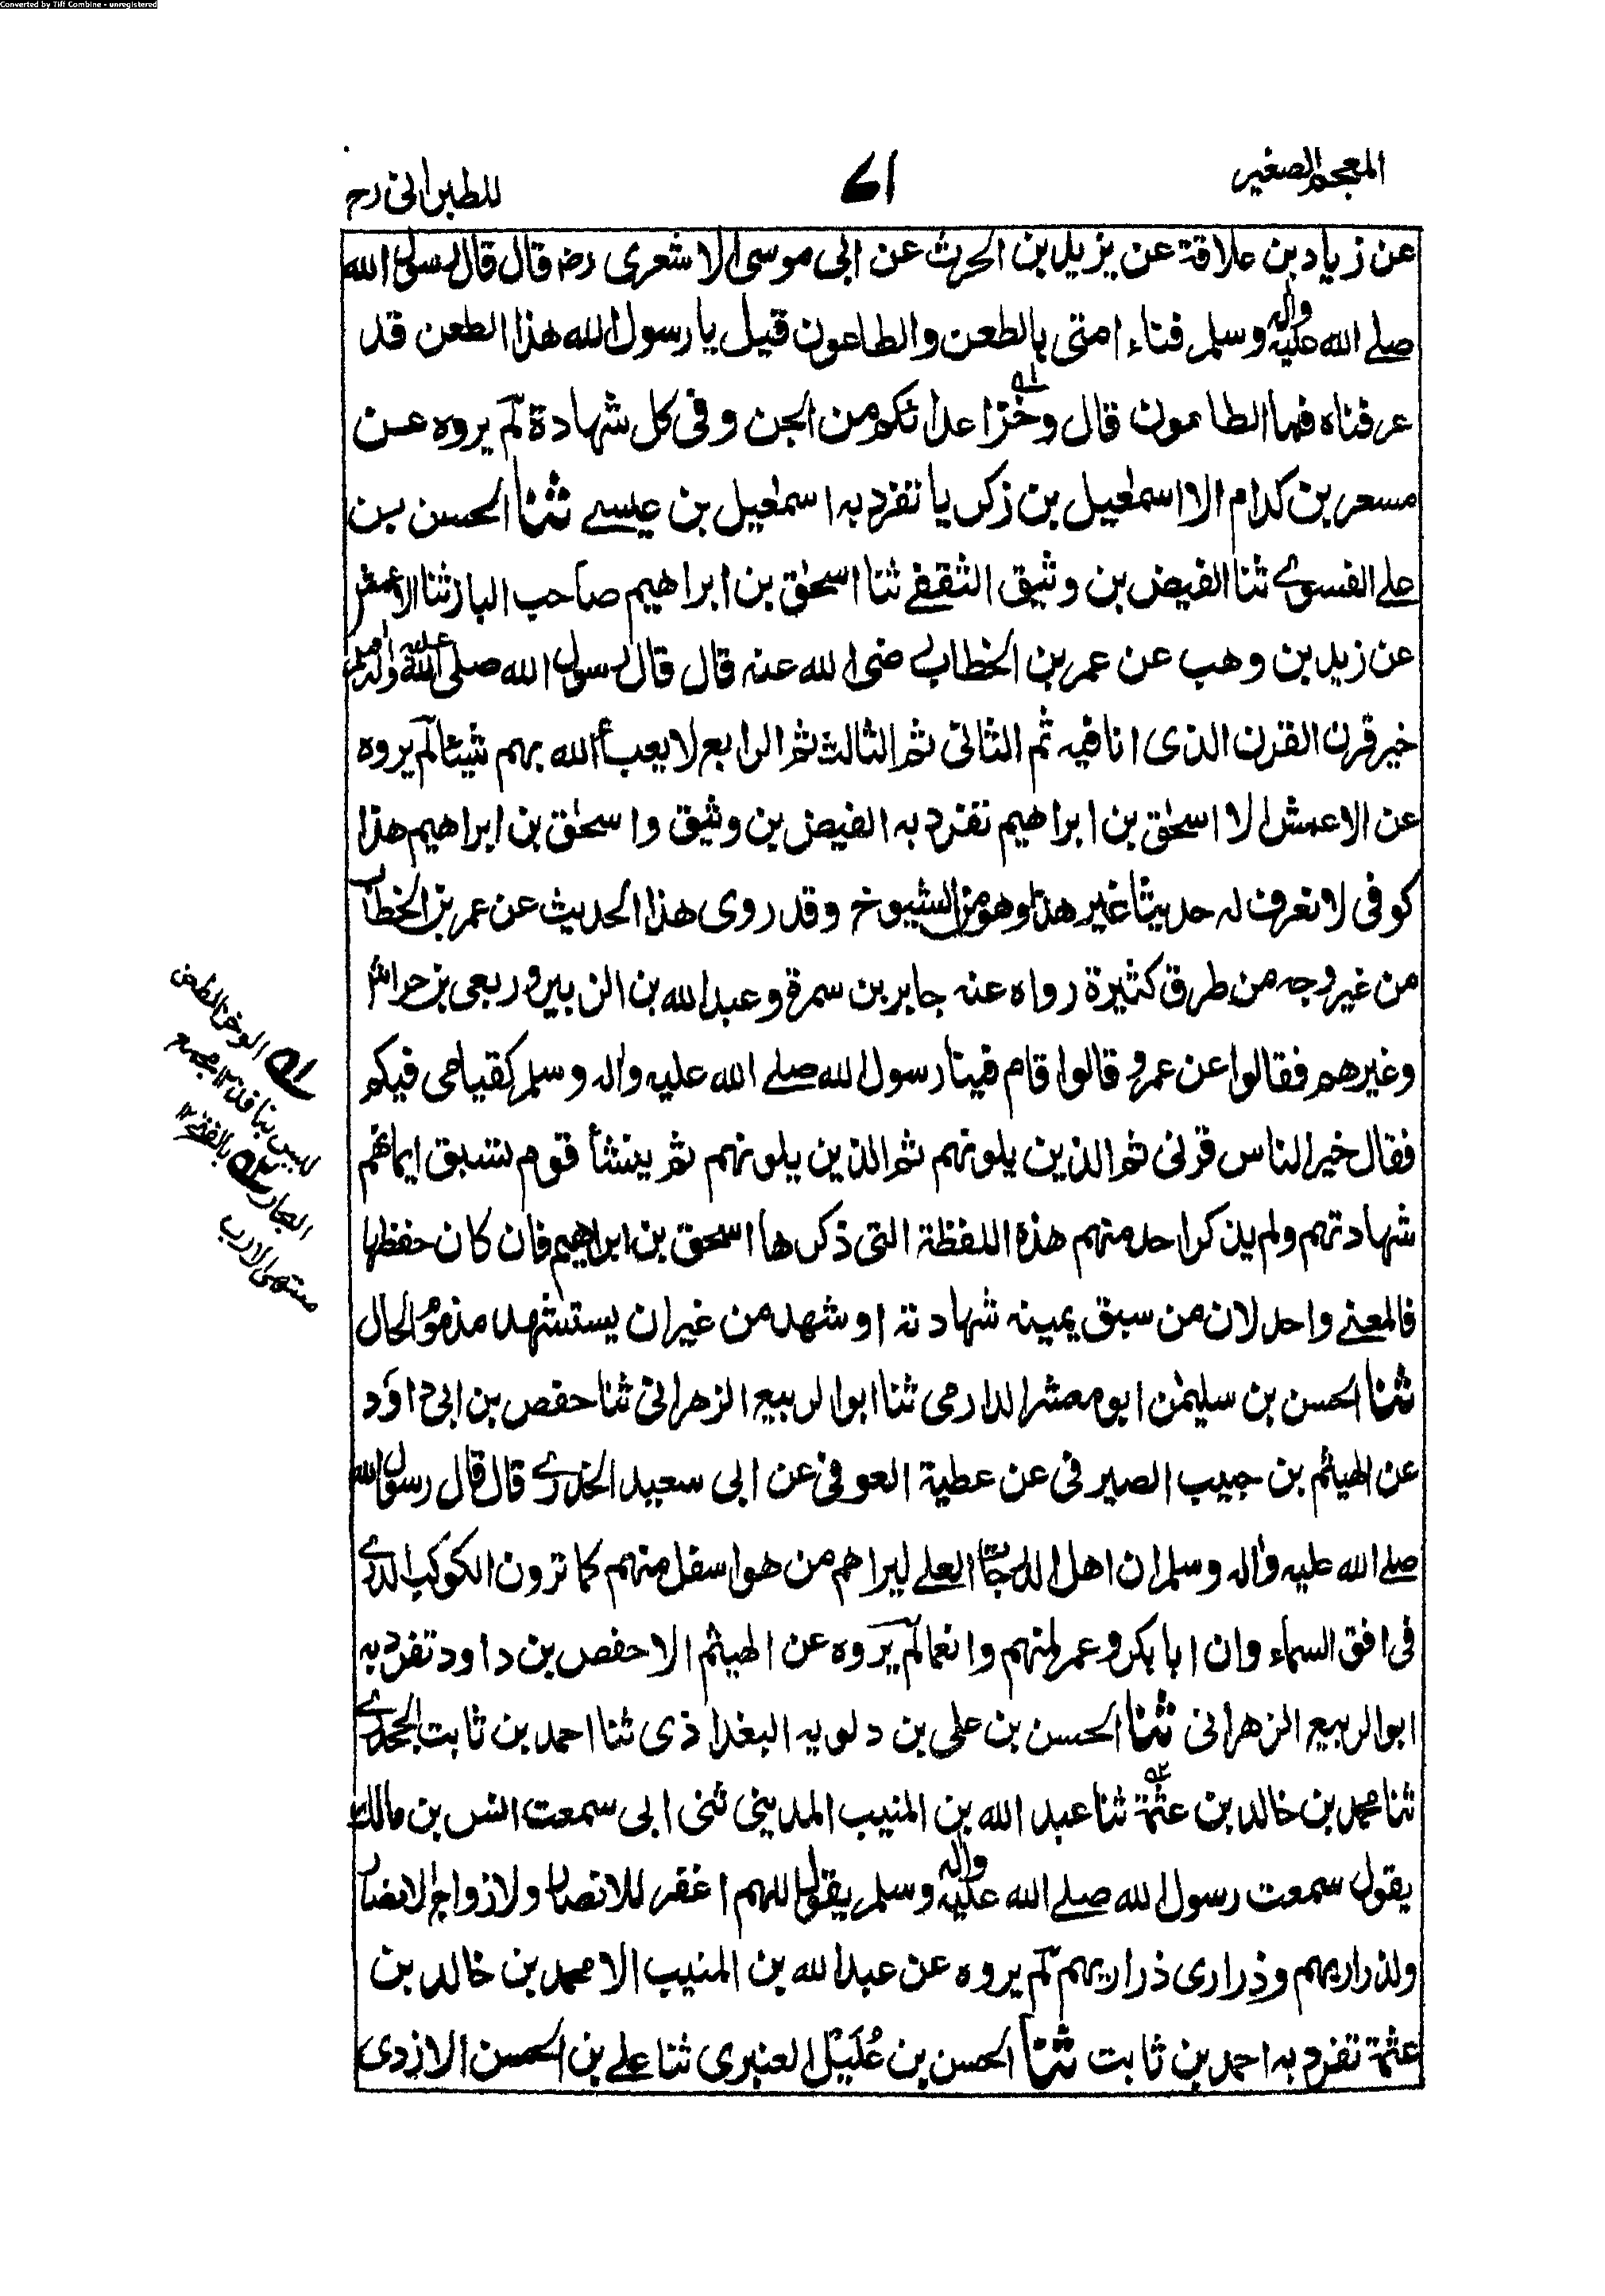 Converted by Tiff Combine - unregistered
المعجم الصغير
۷۱
للطبرانی رح
عن زياد بن علاقة عن يزيد بن الحرث عن ابی موسی الاشعری رضہ قال قال رسول الله
صلے الله عليه واٰله وسلم فناء امتی بالطعن والطاعون قيل يا رسول الله هذا الطعن قد
عرفناه فما الطاعون قال وخز اعدائكم من الجن وفی كل شهادة لم يروه عن
مسعر بن كدام الا اسمٰعيل بن زكريا تفرد به اسمٰعيل بن عيسے ثنا الحسن بن
علے الفسوے ثنا الفيض بن وثيق الثقفے ثنا اسحٰق بن ابراهيم صاحب البار ثنا الاعمش
عن زيد بن وهب عن عمر بن الخطاب رضی الله عنه قال قال رسول الله صلی الله عليه واٰله وسلم
خير قرن القرن الذی انا فيه ثم الثانی ثم الثالث ثم الرابع لا يعبأ الله بهم شيئا لم يروه
عن الاعمش الا اسحٰق بن ابراهيم تفرد به الفيض بن وثيق واسحٰق بن ابراهيم هذا
كوفی لا نعرف له حديثا غير هذا وهو من الشيوخ وقد روی هذا الحديث عن عمر بن الخطاب
من غير وجه من طرق كثيرة رواه عنه جابر بن سمرة وعبد الله بن الزبير وربعی بن حراش
وغيرهم فقالوا عن عمر و قالوا قام فينا رسول الله صلے الله عليه واٰله وسلم كقيامی فيكم
فقال خير الناس قرنی ثم الذين يلونهم ثم الذين يلونهم ثم ينشأ قوم تسبق ايمانهم
شهادتهم ولم يذكر احد منهم هذه اللفظة التی ذكرها اسحق بن ابراهيم فان كان حفظها
فالمعنے واحد لان من سبق يمينه شهادته او شهد من غير ان يستشهد مذموم الحال
ثنا الحسن بن سليمٰن ابو معشر الدارمی ثنا ابو الربيع الزهرانی ثنا حفص بن ابی داود
عن الهيثم بن حبيب الصيرفی عن عطية العوفی عن ابی سعيد الخدرے قال قال رسول الله
صلے الله عليه واٰله وسلم ان اهل الدرجات العلے ليراهم من هو اسفل منهم كما ترون الكوكب الدرے
فی افق السماء وان ابا بكر وعمر لمنهم وانعما لم يروه عن الهيثم الا حفص بن داود تفرد به
ابو الربيع الزهرانی ثنا الحسن بن علی بن دلويه البغداذی ثنا احمد بن ثابت الجحدرے
ثنا محمد بن خالد بن عثمة ثنا عبد الله بن المنيب المدينی ثنی ابی سمعت انس بن مالك
يقول سمعت رسول الله صلے الله عليه واٰله وسلم يقول اللهم اغفر للانصار ولازواج الانصار
ولذراريهم وذراری ذراريهم لم يروه عن عبد الله بن المنيب الا محمد بن خالد بن
عثمة تفرد به احمد بن ثابت ثنا الحسن بن عُلَيْل العنبری ثنا علے بن الحسن الازدی
لہ الوخز الطعن
ليس بنافذ ۱۲ مجمع
البحار ۲ہ بالفتح ۱۲
منتهی الارب